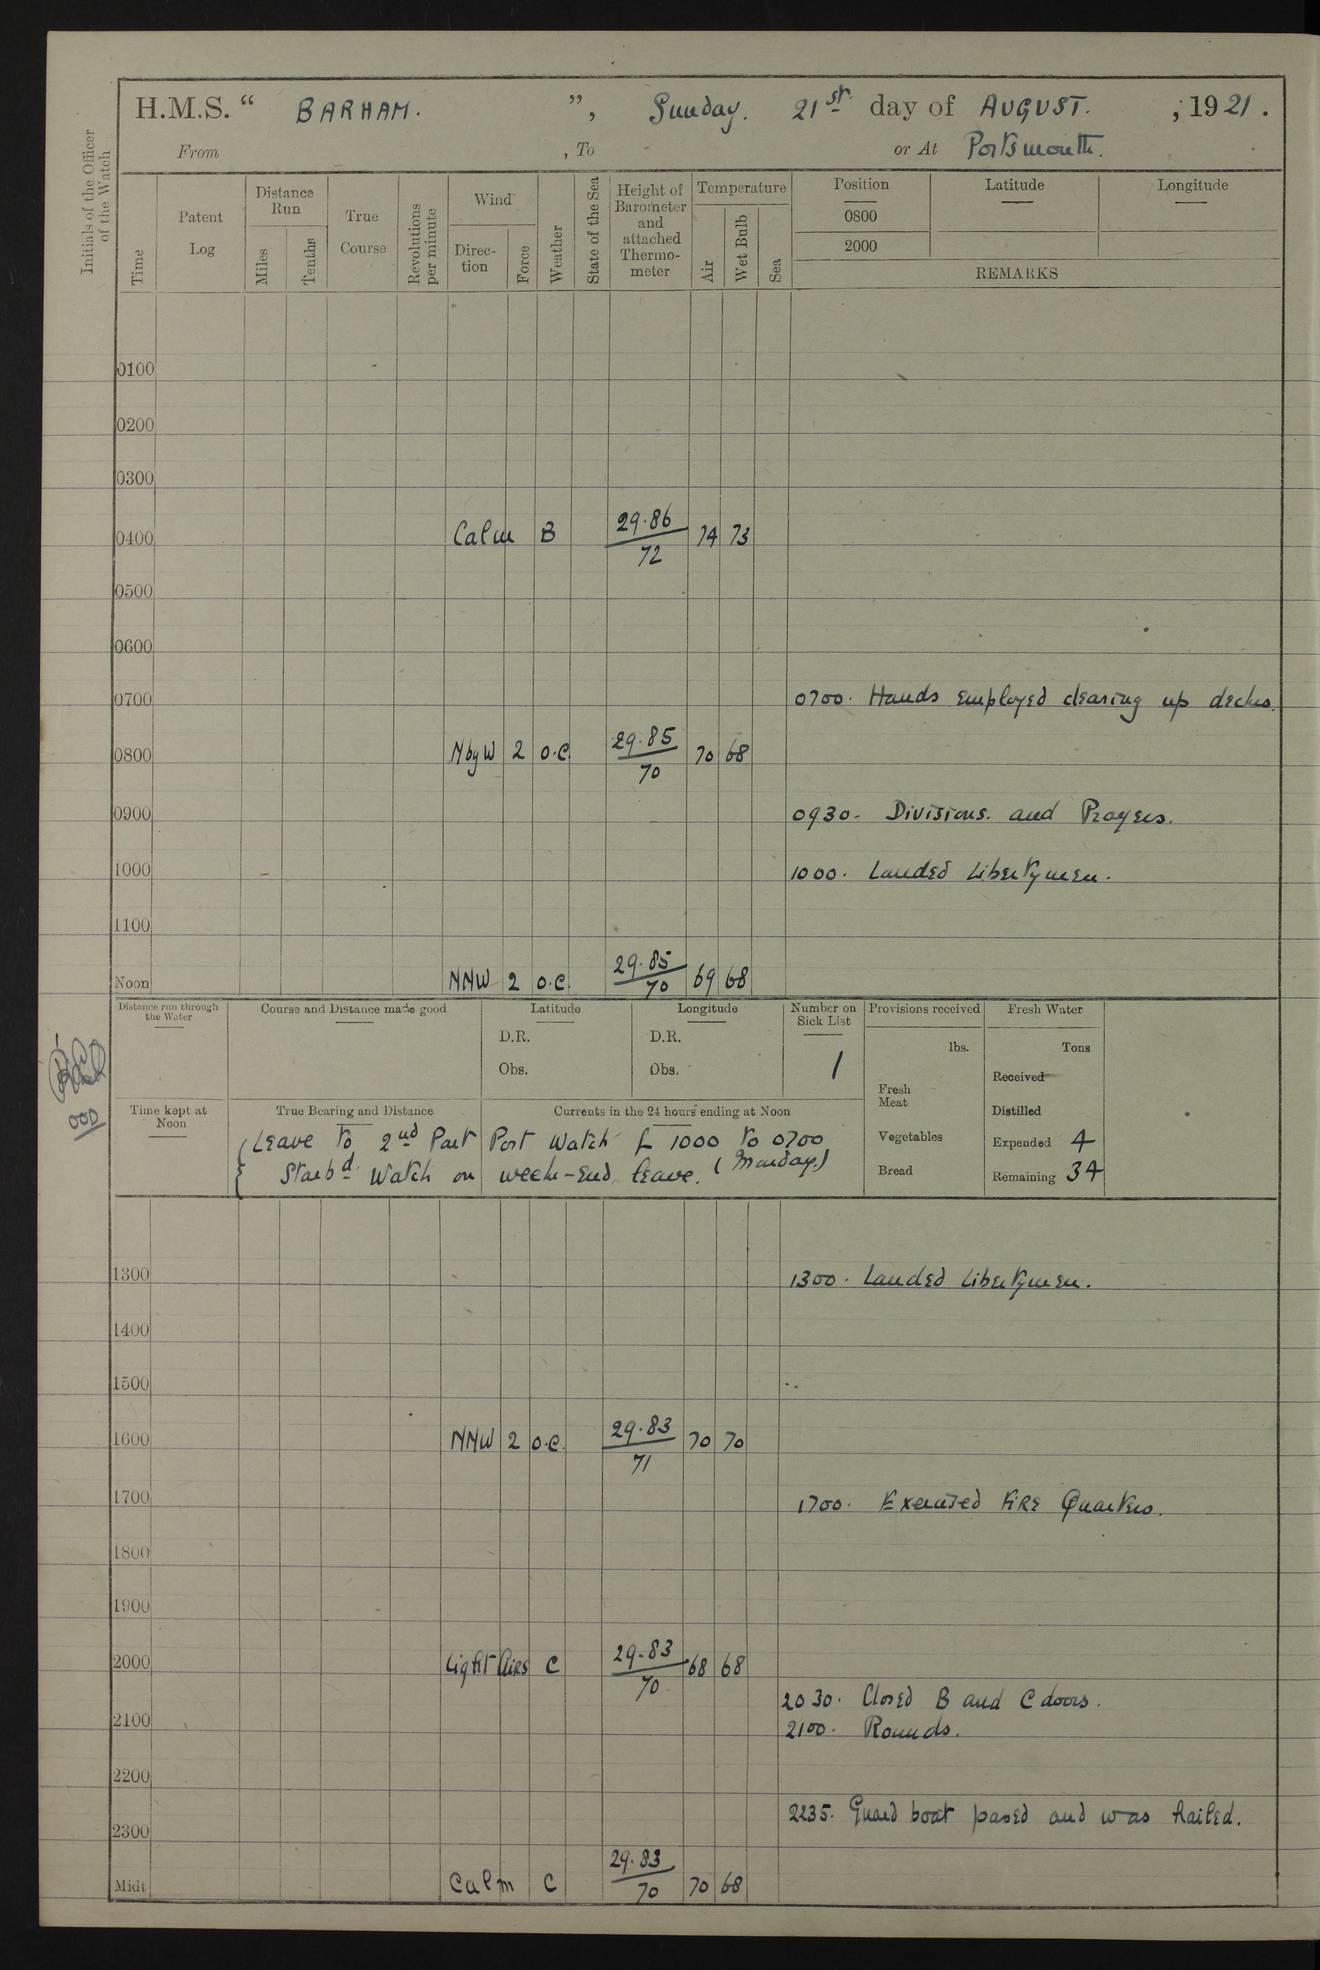 H.M.S. “ BARHAM. ”, Sunday. 21st day of AUGUST. , 1921.
From , To or At Portsmouth.
Initials of the Officer of the Watch
Time
Patent Log
Distance Run
Miles
Tenths
True Course
Revolutions per minute
Wind
Direc-tion
Force
Weather
State of the Sea
Height of Barometer and attached Thermo-meter
Temperature
Air
Wet Bulb
Sea
Position Latitude Longitude
0800
2000
REMARKS
0100
0200
0300
0400 Calm B 29.86/72 74 73
0500
0600
0700 0700. Hands employed clearing up decks.
0800 N by W 2 o.c. 29.85/70 70 68
0900 0930. Divisions. and Prayers.
1000 1000. Landed Libertymen.
1100
Noon NNW 2 o.c. 29.85/70 69 68
Distance run through the Water
Course and Distance made good
Latitude
D.R.
Obs.
Longitude
D.R.
Obs.
Number on Sick List
1
Provisions received
lbs.
Fresh Meat
Vegetables
Bread
Fresh Water
Tons
Received
Distilled
Expended 4
Remaining 34
OOD
Time kept at Noon
True Bearing and Distance
Currents in the 24 hours ending at Noon
Leave to 2nd Part Port Watch f 1000 to 0700
Starbd. Watch on week-end leave. (Monday.)
1300 1300. Landed Libertymen.
1400
1500
1600 NNW 2 o.c. 29.83/71 70 70
1700 1700. Exercised FIRE Quarters.
1800
1900
2000 Light Airs C 29.83/70 68 68
2030. Closed B and C doors.
2100 2100. Rounds.
2200
2235. Guard boat passed and was hailed.
2300
Midt Calm C 29.83/70 70 68